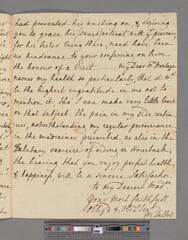 had prevented his waiting on & desiring
you to grace his
for his sister being there, need have been
no hindrance to your conferring on him
the honour of a Visit. My Dear
names my health so particularly, that it wd
be the highest ingratitude in me not to
mention it, tho' I can make very little boast
on that subject, the pain in my side contin-
ues, notwithstanding my regular perseverance
in the medicines prescribed, as also in the
exercise of riding on horseback,
the hearing that you enjoy perfect health,
& happiness will be a sincere satisfaction
to my Dearest
Your most faithfull
M: Talbot